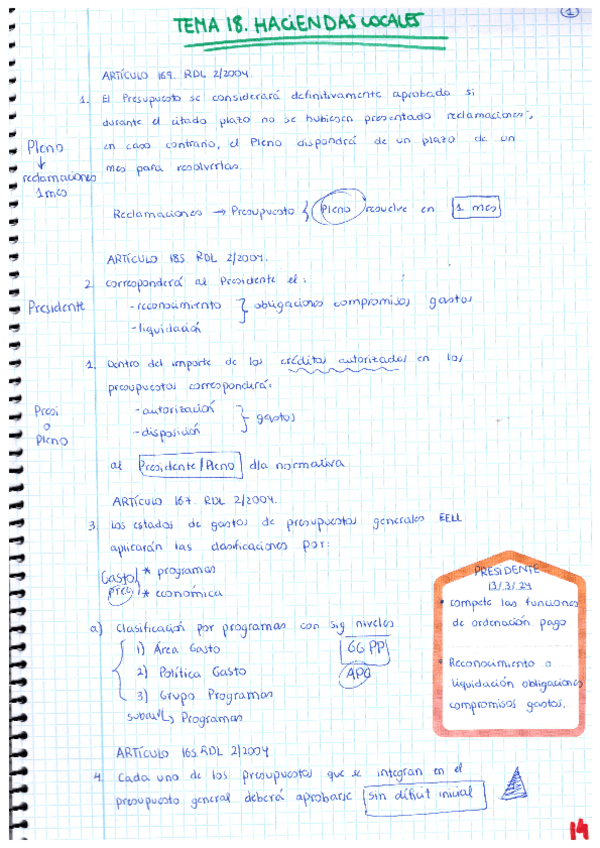 1
TEMA 18. HACIENDAS LOCALES
ARTÍCULO 169. RDL 2/2004.
1. El Presupuesto se considerará definitivamente aprobado si
durante el citado plazo no se hubiesen presentado reclamaciones;
en caso contrario, el Pleno dispondrá de un plazo de un
mes para resolverlas.
Pleno
↓
reclamaciones
1 mes
Reclamaciones → Presupuesto { Pleno resuelve en 1 mes
ARTÍCULO 185 RDL 2/2004.
2 corresponderá al Presidente el:
Presidente
- reconocimiento } obligaciones compromisos gastos
- liquidación
1. Dentro del importe de los créditos autorizados en los
presupuestos corresponderá:
Presi
o
Pleno
- autorización } gastos
- disposición
al Presidente/Pleno d/a normativa
ARTÍCULO 167. RDL 2/2004.
3 Los estados de gastos de presupuestos generales EELL
aplicarán las clasificaciones por:
Gasto * programas
presi * económica
a) Clasificación por programas con sig niveles
1) Área Gasto GGPP
2) Política Gasto APG
3) Grupo Programas
↳ Programas
PRESIDENTE
13/3/24
• compete las funciones
de ordenación pago
• Reconocimiento o
liquidación obligaciones
compromisos gastos.
ARTÍCULO 165 RDL 2/2004
4. Cada uno de los presupuestos que se integran en el
presupuesto general deberá aprobarse sin déficit inicial
14